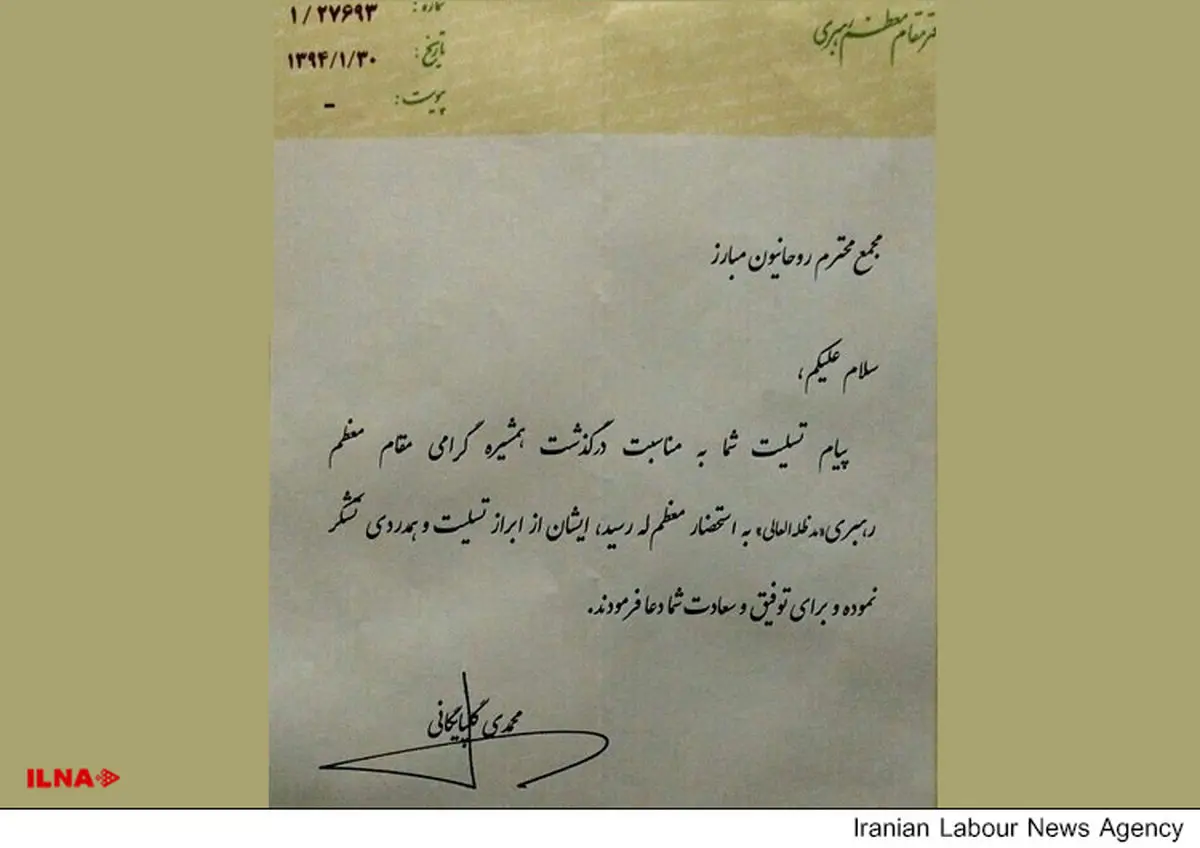 دفتر مقام معظم رهبری
شماره: ۱/۲۷۶۹۳
تاریخ: ۱۳۹۴/۱/۳۰
پیوست: -
مجمع محترم روحانیون مبارز
سلام علیکم،
پیام تسلیت شما به مناسبت درگذشت همشیره گرامی مقام معظم
رهبری«مدظله‌العالی» به استحضار معظم‌له رسید، ایشان از ابراز تسلیت و همدردی تشکر
نموده و برای توفیق و سعادت شما دعا فرمودند.
محمدی گلپایگانی
ILNA
Iranian Labour News Agency